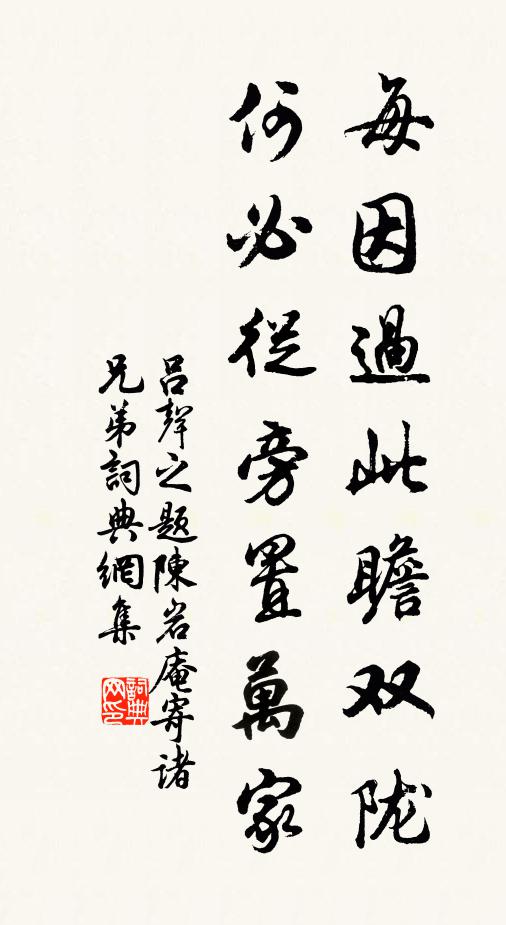 每因過此瞻双陇
何必從旁置萬家
吕聲之题陳岩庵寄诸
兄弟詞典網集
詞典网印